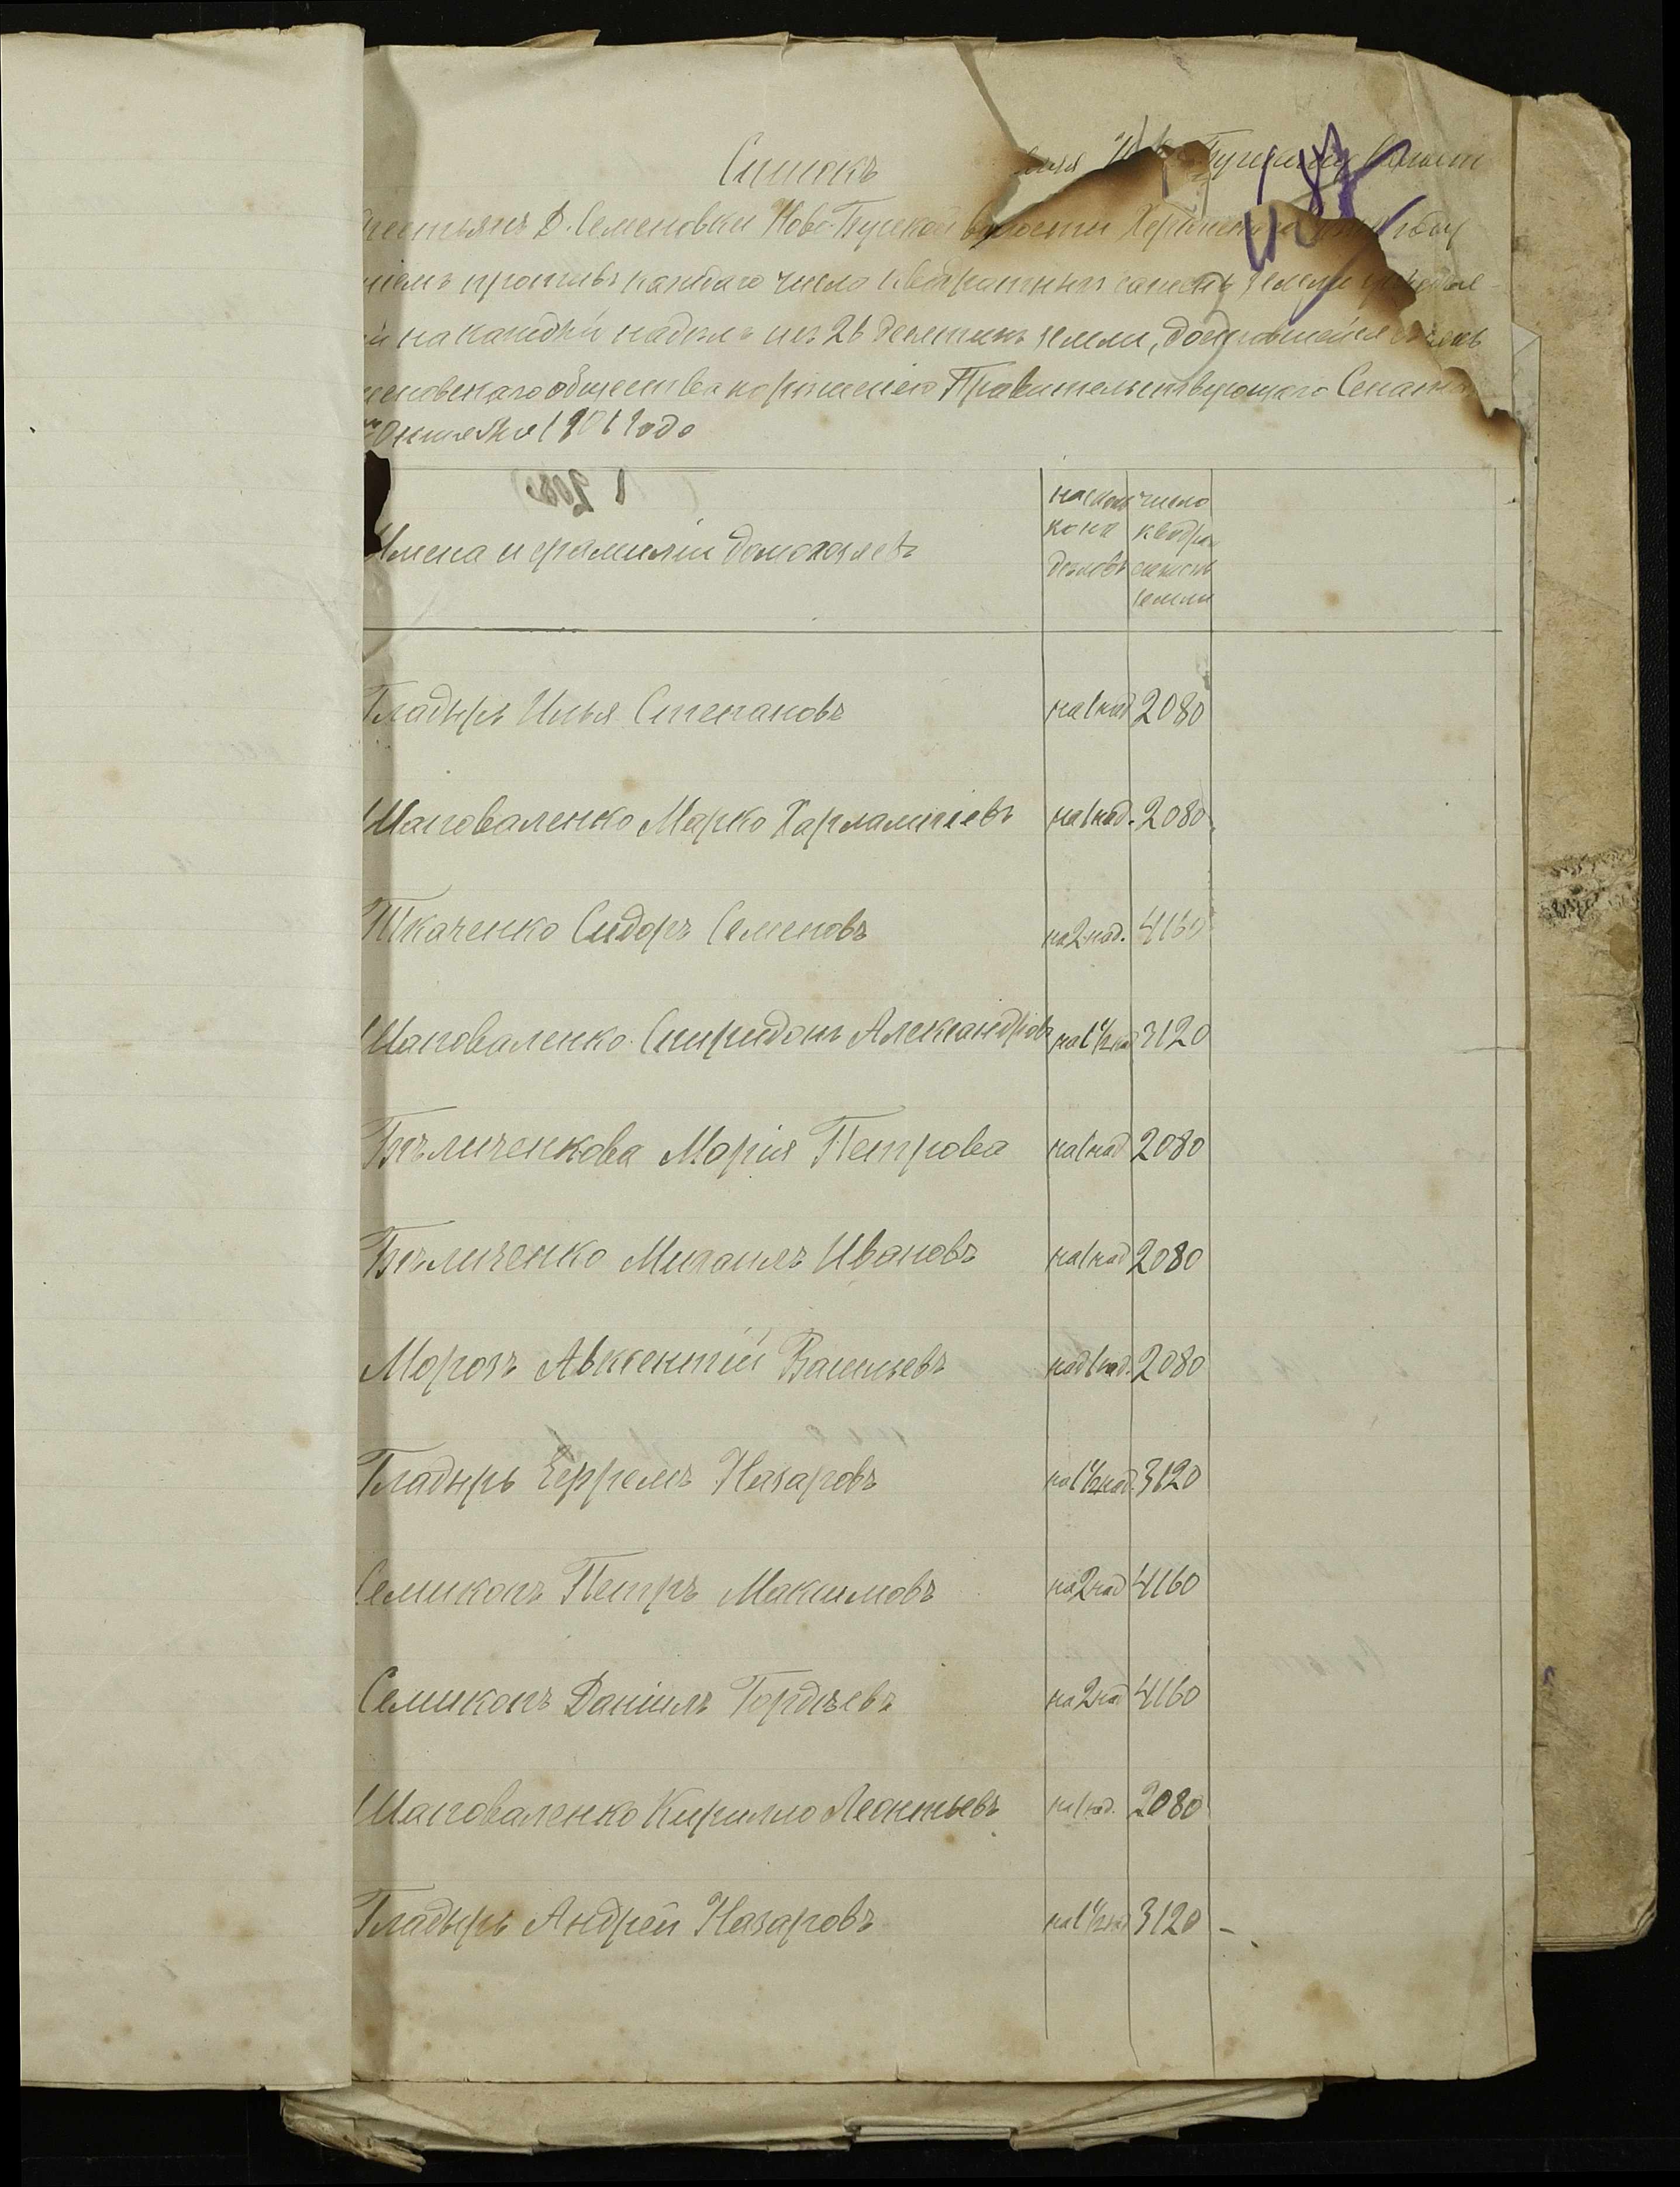 Списокъ
крестьянъ Д. Семеновки Ново-Бугской волости Херсонскаго
противъ каждаго число квадратныхъ сажень земли
на каждый надѣлъ изъ 26 десятинъ земли, доставшейся
общества по рѣшенію Правительствующаго Сената
1901 года
Имена и фамиліи домохозяевъ
на сколько надѣловъ
число квадра сажень земли
Гладырь Илья Степановъ на 1 над 2080
Шаповаленко Марко Харлампіевъ на 1 над. 2080
Ткаченко Сидоръ Семеновъ на 2 над. 4160
Шаповаленко Спиридонъ Александровъ на 1 1/2 над 3120
Бѣличенкова Марія Петрова на 1 над 2080
Бѣличенко Михаилъ Ивановъ на 1 над 2080
Морозъ Авксентій Васильевъ над 1 над. 2080
Гладырь Ефремъ Назаровъ на 1 1/2 над. 3120
Семикопъ Петръ Максимовъ на 2 над 4160
Семикопъ Даніилъ Гордѣевъ на 2 над 4160
Шаповаленко Кирилло Леонтьевъ на 1 над. 2080
Гладырь Андрей Назаровъ на 1 1/2 над 3120 -